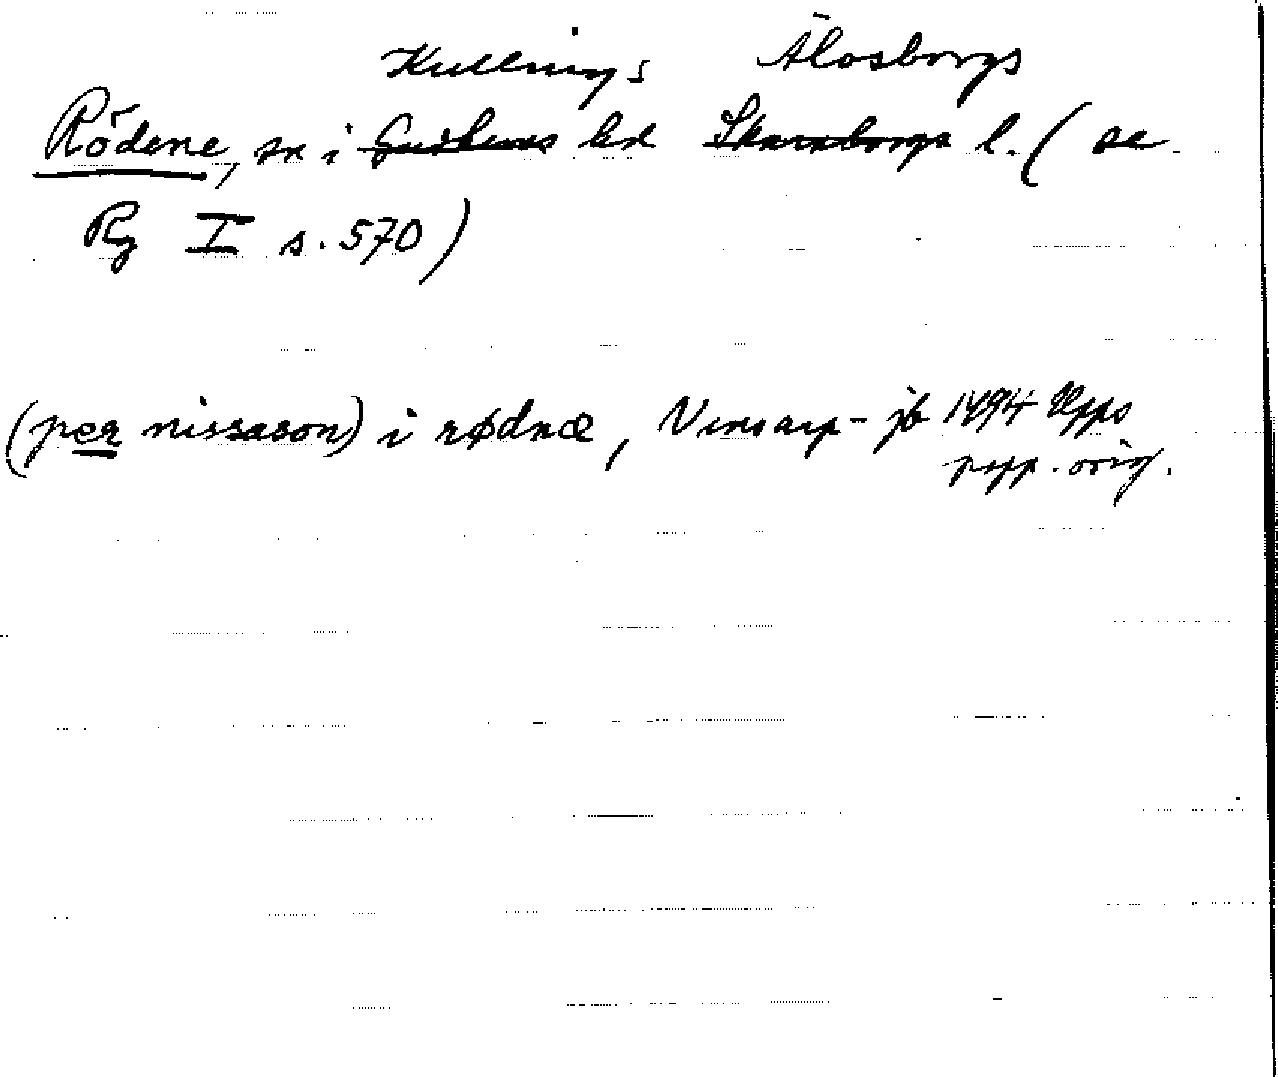 Kullings Älvsborgs
Rödene, sn i Gudhems hd Skaraborgs l. (se
Rg I s. 570)
(per nissason) i rødnæ, Vinsarp-jb 1494 Upps
papp. orig.